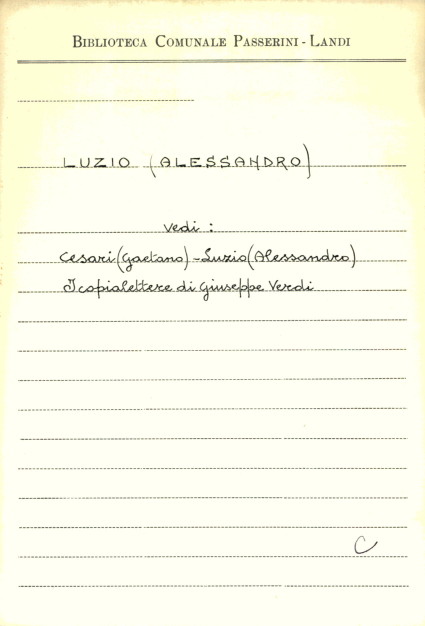 BIBLIOTECA COMUNALE PASSERINI - LANDI
LUZIO (ALESSANDRO)
vedi :
Cesari (Gaetano) - Luzio (Alessandro)
I copialettere di Giuseppe Verdi
C